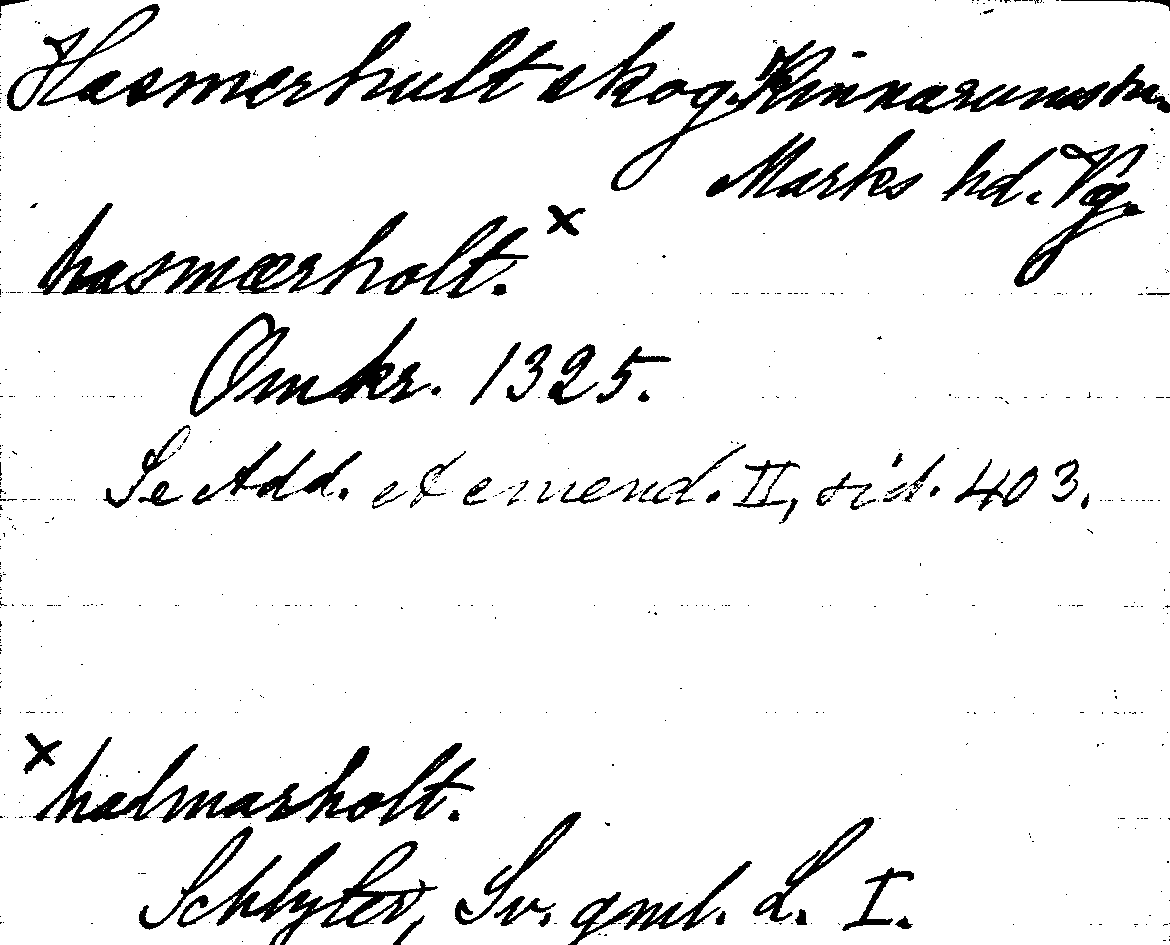 Hasmerhult skog. Kinnarums sn.
Marks hd. Vg.
hasmærholt. x
Omkr. 1325.
Se Add. et emend. II, sid. 403.
x halmarholt.
Schlyter, Sv. gml. L. I.